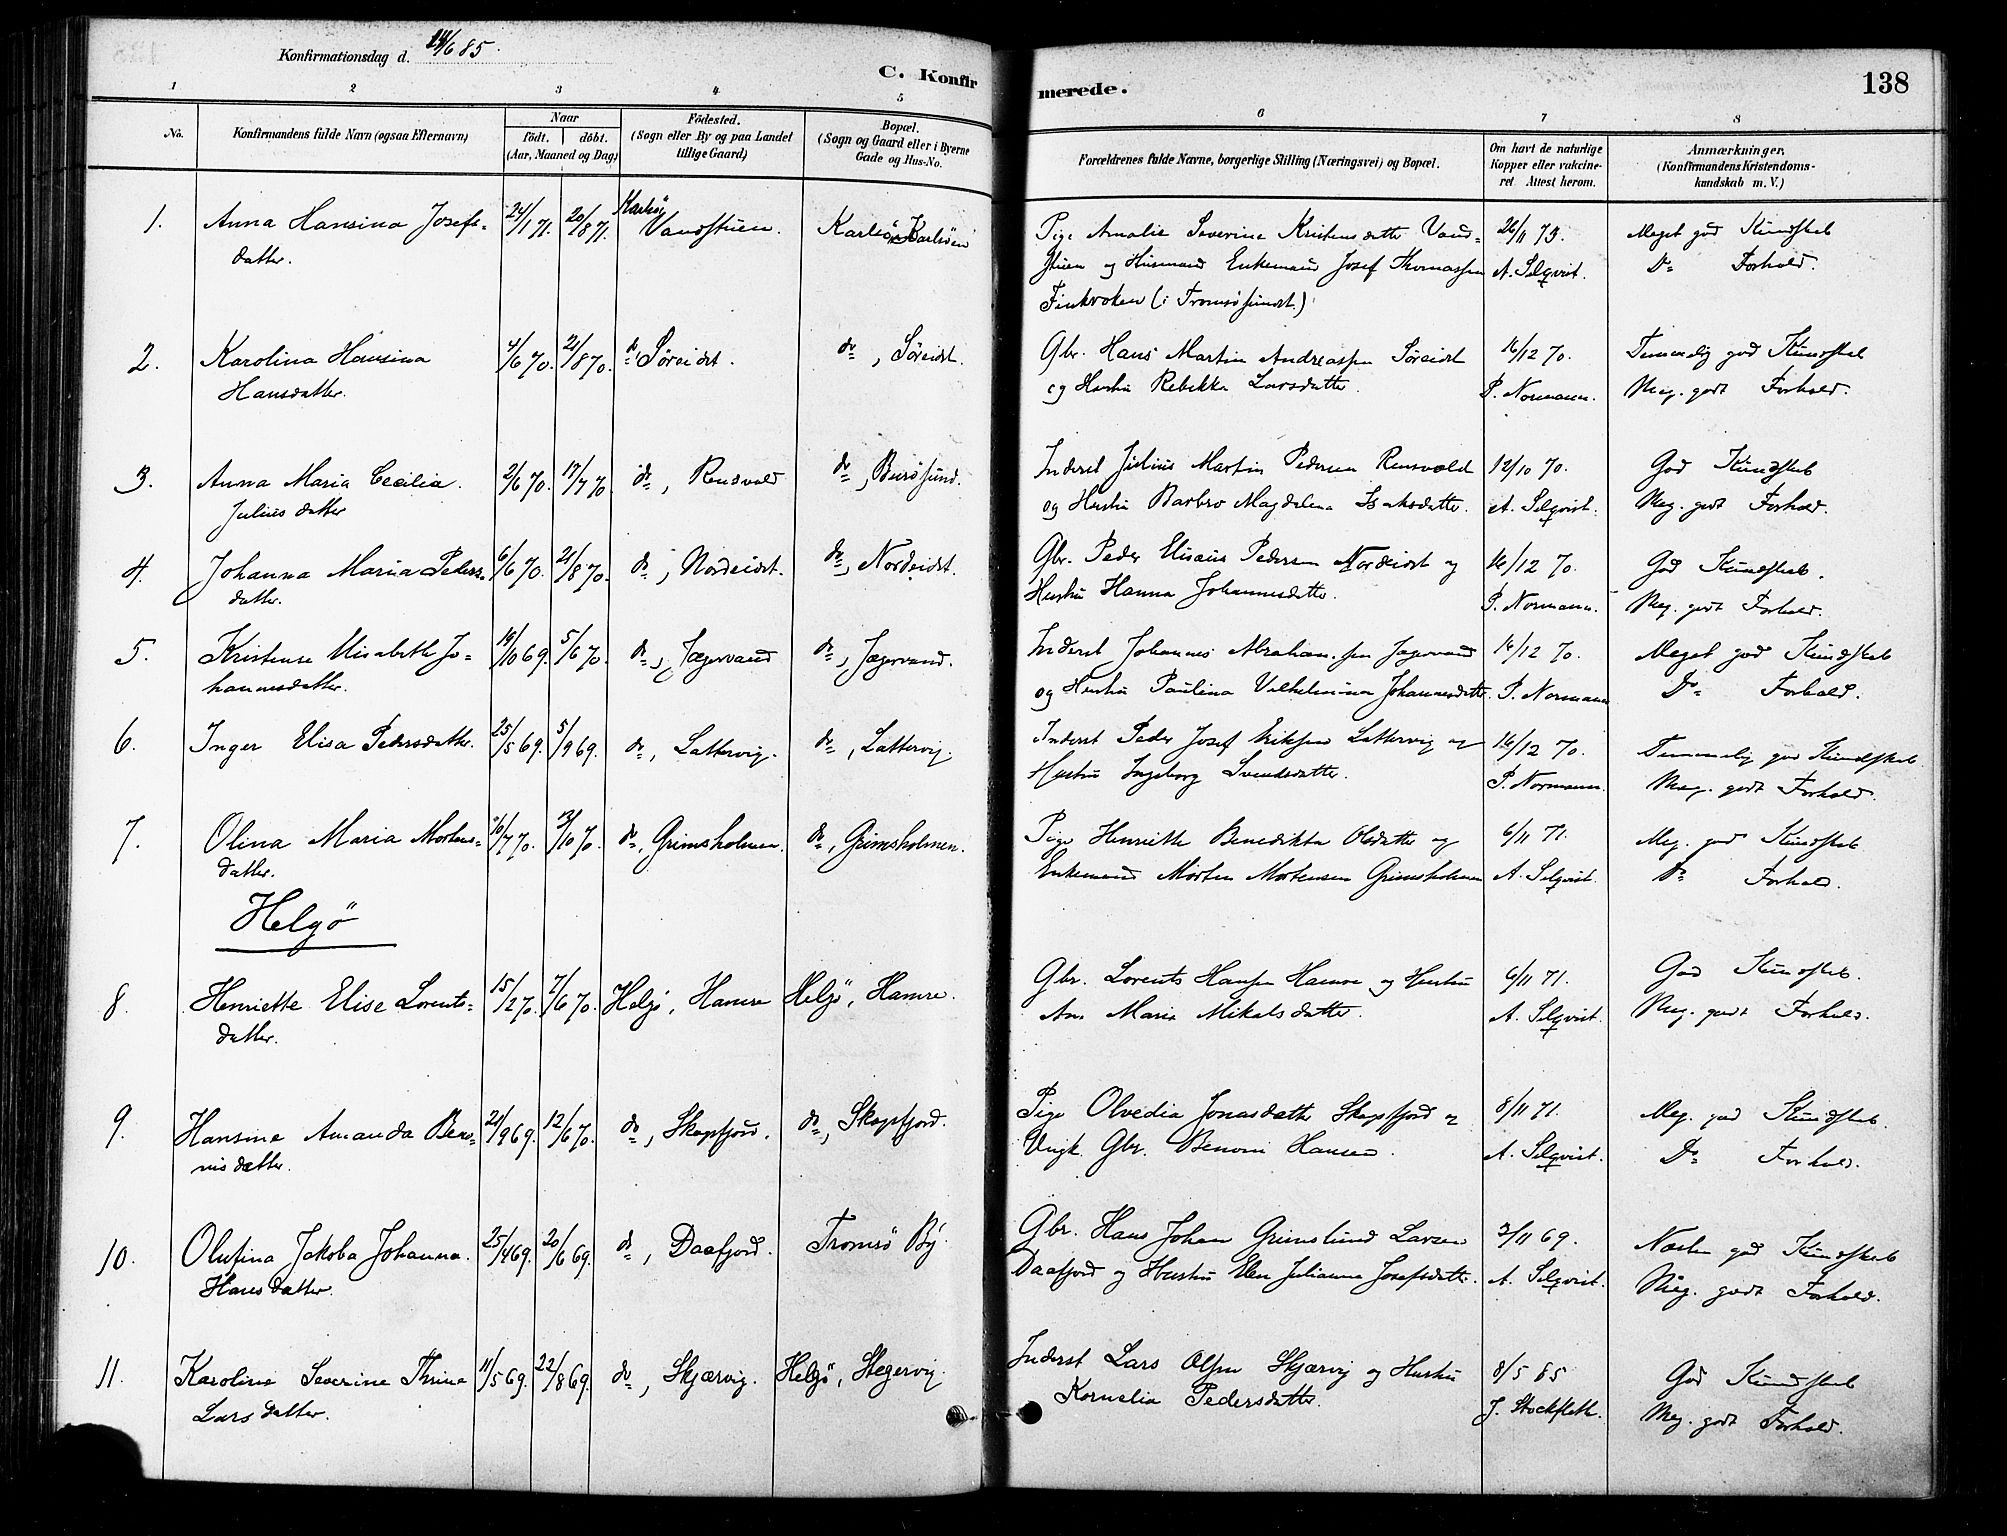 Konfirmationsdag d. 14/6 85.
C. Konfir
merede.
138
1 2 3 4 5 6 7 8
No.
Konfirmandens fulde Navn (ogsaa Efternavn)
Naar
födt. döbt.
(Aar, Maaned og Dag)
Födested.
(Sogn eller By og paa Landet
tillige Gaard)
Bopæl.
(Sogn og Gaard eller i Byerne
Gade og Hus-No.
Forældrenes fulde Navne, borgerlige Stilling (Næringsvei) og Bopæl.
Om havt de naturlige
Kopper eller vakcine-
ret Attest herom.
Anmærkninger,
(Konfirmandens Kristendoms-
kundskab m. V.)
1. Anna Hansina Josefs- 24/1 71. 20/8 71. Karlsö Vanstuen. Karlsö, Karlsöen Pige Amalie Severine Kristensdatter Vand- 26/11 73. Meget god Kundskab
datter. stuen og Husmand Enkemand Josef Thomassen A. Selqvist. Do Forhold.
Finkroken (i Tromsösundet.)
2. Karolina Hansina 4/6 70. 21/8 70. do, Söreidet. do, Söreidet. Gbr. Hans Martin Andreassen Söreidet 16/12 70. Temmelig god Kundskab
Hansdatter. og Hustru Rebekka Larsdatter. P. Normann. Meg. godt Forhold.
3. Anna Maria Cecilia. 2/6 70. 17/7 70. do, Rensvold do, Burösund. Inderst Julius Martin Pedersen Rensvold 12/10 70. God Kundskab
Julius datter og Hustru Barbro Magdelena Isaksdatter. A. Selqvist. Meg. godt Forhold.
4. Johanna Maria Peders- 6/6 70. 21/8 70. do, Nordeidet. do, Nordeidet. Gbr. Peder Elisæus Pedersen Nordeidet og 16/12 70. God Kundskab.
datter. Hustru Hanna Johannesdatter. P. Normann. Meg. godt Forhold.
5. Kristense Elisabeth Jo- 19/10 69. 5/6 70. do, Jægervand do, Jægervand. Inderst Johannes Abrahamsen Jægervand 16/12 70. Meget god Kundskab
hannesdatter. og Hustru Paulina Vilhelmina Johannesdatter. P. Normann Do Forhold.
6. Inger Elisa Pedersdatter. 25/5 69. 5/9 69. do, Lattervig. do, Lattervig. Inderst Peder Josef Eriksen Lattervig og 16/12 70. Temmelig god Kundskab
Hustru Ingeborg Svendsdatter. P. Normann. Meg. godt Forhold.
7. Olina Maria Mortens- 16/7 70. 13/10 70. do, Grimsholmen. do, Grimsholmen. Pige Henriette Benedikta Olsdatter og 6/11 71. Meg. god Kundskab
datter. Enkemand Morten Mortensen Grimsholmen A. Selqvist. Do Forhold.
Helgö
8. Henriette Elise Lorents- 15/2 70. 7/6 70. Helgö, Hamre Helgö, Hamre. Gbr. Lorents Hansen Hamre og Hustru 6/11 71. God Kundskab.
datter. Ane Maria Mikalsdatter. A. Selqvist. Meg. godt Forhold.
9. Hansine Amanda Beno- 21/9 69. 12/6 70. do, Skogsfjord. do, Skogsfjord. Pige Olvedia Jonasdatter Skogsfjord og 8/11 71. Meg. god Kundskab.
nis datter. Ungk. Gbr. Benoni Hansen. A. Selqvist. Do Forhold.
10. Olufina Jakoba Johanna. 25/4 69. 20/6 69. do, Daafjord. Tromsö By. Gbr. Hans Johan Grimslund Larsen 2/11 69. Næsten god Kundskab
Hansdatter. Daafjord og Hustru Elen Julianna Josefsdatter. A. Selqvist. Meg. godt Forhold.
11. Karoline Severine Thrine 11/5 69. 22/8 69. do, Skjærvig. Helgö, Stegervig. Inderst Lars Olsen Skjærvig og Hustru 8/5 85 God Kundskab
Lars datter. Kornelia Pedersdatter. J. Stockfleth. Meg. godt Forhold.